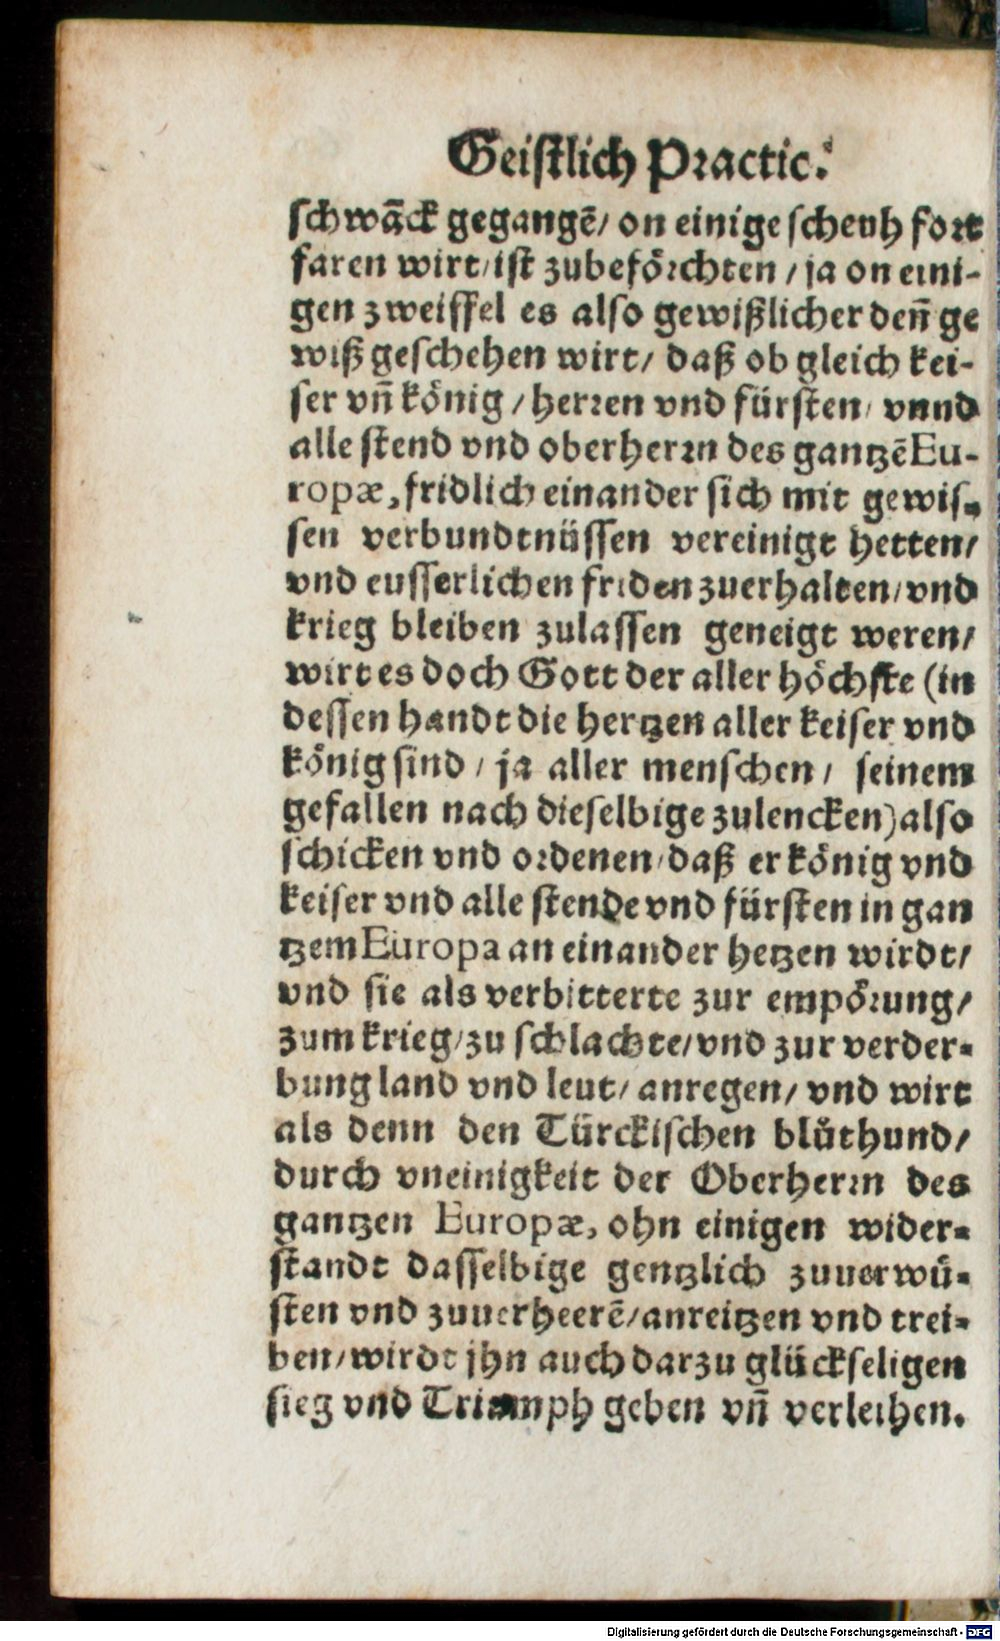 Geistlich Practic.
schwāck gegangē/ on einige scheuh fort
faren wirt/ ist zubeförchten / ja on eini-
gen zweiffel es also gewißlicher deñ ge
wiß geschehen wirt/ daß ob gleich kei-
ser vñ könig / herren vnd fürsten/ vnnd
alle stend vnd oberherrn des gantzē Eu-
ropæ, fridlich einander sich mit gewis-
sen verbundtnüssen vereinigt hetten/
vnd eusserlichen friden zuerhalten/ vnd
krieg bleiben zulassen geneigt weren/
wirt es doch Gott der aller höchste (in
dessen handt die hertzen aller keiser vnd
könig sind / ja aller menschen / seinem
gefallen nach dieselbige zulencken) also
schicken vnd ordenen/ daß er könig vnd
keiser vnd alle stende vnd fürsten in gan
tzem Europa an einander hetzen wirdt/
vnd sie als verbitterte zur empörung/
zum krieg/ zu schlachte/ vnd zur verder-
bung land vnd leut/ anregen/ vnd wirt
als denn den Türckischen blůthund/
durch vneinigkeit der Oberherrn des
gantzen Europæ, ohn einigen wider-
standt dasselbige gentzlich zuuerwü-
sten vnd zuuerheerē/ anreitzen vnd trei-
ben/ wirdt jhn auch darzu glückseligen
sieg vnd Triumph geben vñ verleihen.
Digitalisierung gefördert durch die Deutsche Forschungsgemeinschaft - DFG